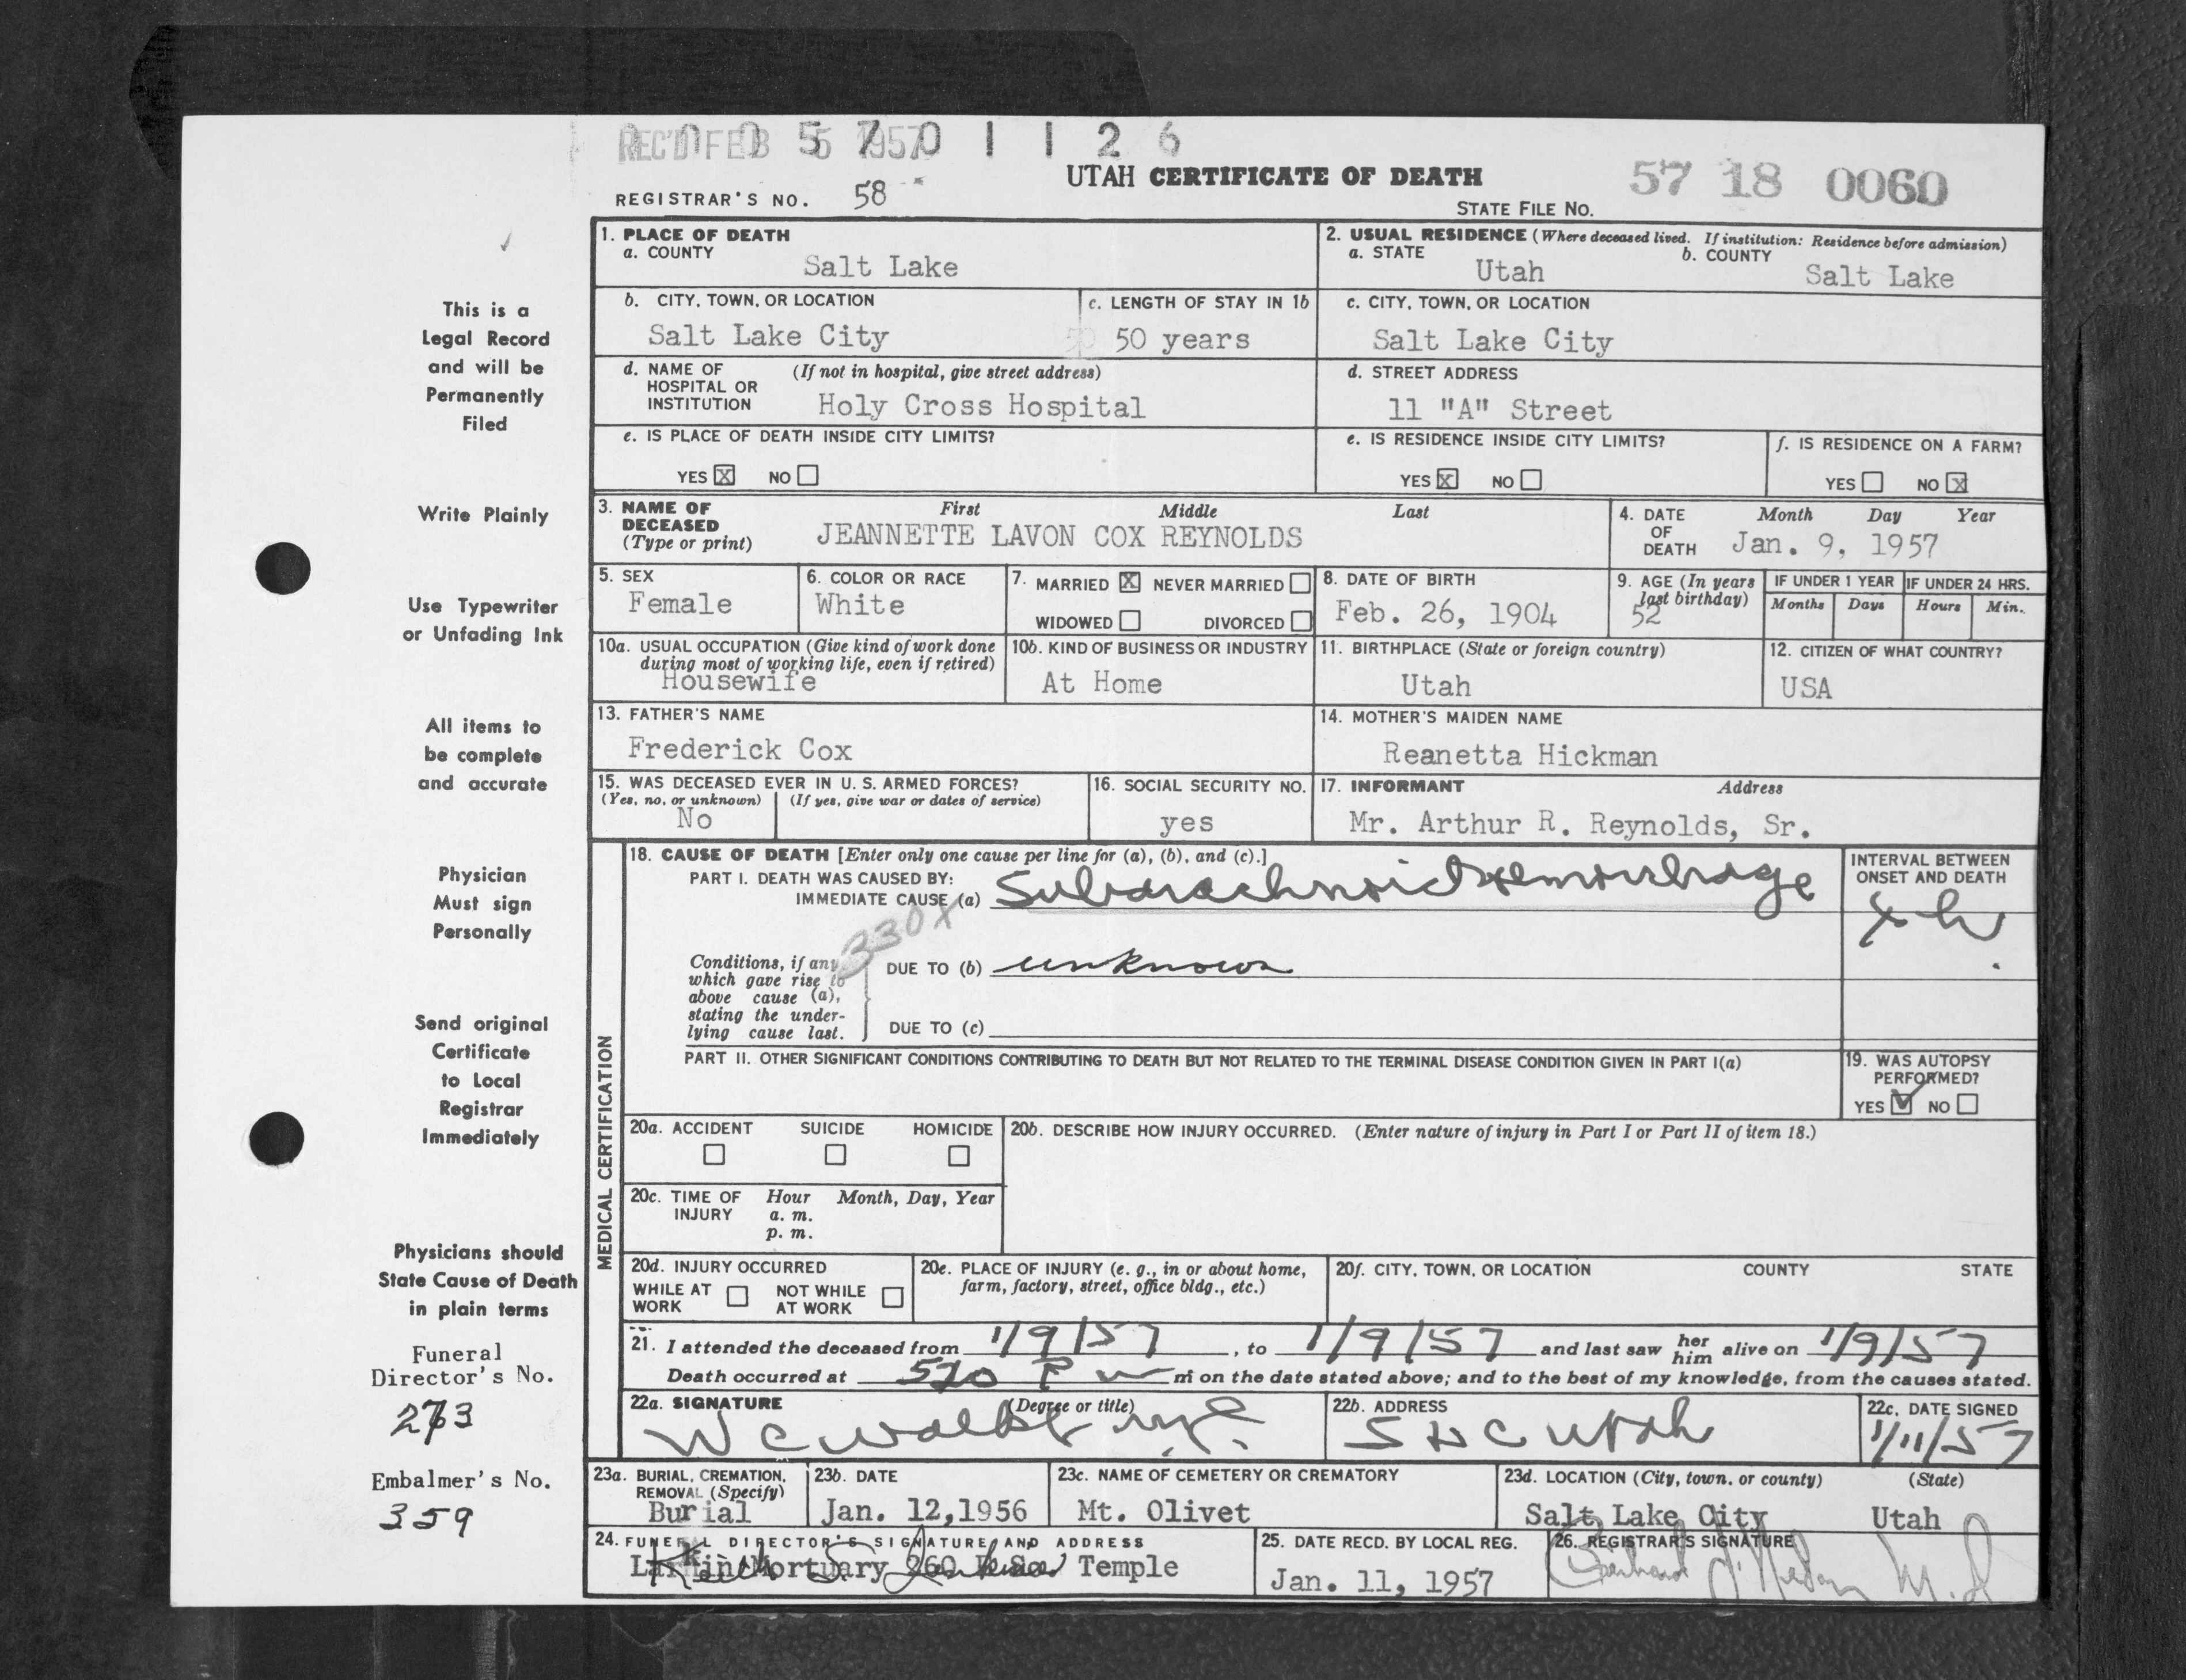 REC'D FEB 5 1957
5 7 0 1 1 2 6
UTAH CERTIFICATE OF DEATH
57 18 0060
REGISTRAR'S NO. 58
STATE FILE NO.
This is a
Legal Record
and will be
Permanently
Filed
Write Plainly
Use Typewriter
or Unfading Ink
All items to
be complete
and accurate
Physician
Must sign
Personally
Send original
Certificate
to Local
Registrar
Immediately
Physicians should
State Cause of Death
in plain terms
Funeral
Director's No.
273
Embalmer's No.
359
1. PLACE OF DEATH
a. COUNTY
Salt Lake
2. USUAL RESIDENCE (Where deceased lived. If institution: Residence before admission)
a. STATE
Utah
b. COUNTY
Salt Lake
b. CITY, TOWN, OR LOCATION
Salt Lake City
c. LENGTH OF STAY IN 1b
50 years
c. CITY, TOWN, OR LOCATION
Salt Lake City
d. NAME OF (If not in hospital, give street address)
HOSPITAL OR
INSTITUTION
Holy Cross Hospital
d. STREET ADDRESS
11 "A" Street
e. IS PLACE OF DEATH INSIDE CITY LIMITS?
YES X NO
e. IS RESIDENCE INSIDE CITY LIMITS?
YES X NO
f. IS RESIDENCE ON A FARM?
YES NO X
3. NAME OF
DECEASED
(Type or print)
First Middle Last
JEANNETTE LAVON COX REYNOLDS
4. DATE
OF
DEATH
Month Day Year
Jan. 9, 1957
5. SEX
Female
6. COLOR OR RACE
White
7. MARRIED X NEVER MARRIED
WIDOWED DIVORCED
8. DATE OF BIRTH
Feb. 26, 1904
9. AGE (In years
last birthday)
52
IF UNDER 1 YEAR
Months Days
IF UNDER 24 HRS.
Hours Min.
10a. USUAL OCCUPATION (Give kind of work done
during most of working life, even if retired)
Housewife
10b. KIND OF BUSINESS OR INDUSTRY
At Home
11. BIRTHPLACE (State or foreign country)
Utah
12. CITIZEN OF WHAT COUNTRY?
USA
13. FATHER'S NAME
Frederick Cox
14. MOTHER'S MAIDEN NAME
Reanetta Hickman
15. WAS DECEASED EVER IN U. S. ARMED FORCES?
(Yes, no, or unknown) (If yes, give war or dates of service)
No
16. SOCIAL SECURITY NO.
yes
17. INFORMANT Address
Mr. Arthur R. Reynolds, Sr.
MEDICAL CERTIFICATION
18. CAUSE OF DEATH [Enter only one cause per line for (a), (b), and (c).]
PART I. DEATH WAS CAUSED BY:
IMMEDIATE CAUSE (a) Subarachnoid Hemorrhage
INTERVAL BETWEEN
ONSET AND DEATH
330X
Conditions, if any
which gave rise to
above cause (a),
stating the under-
lying cause last.
DUE TO (b) unknown
DUE TO (c)
PART II. OTHER SIGNIFICANT CONDITIONS CONTRIBUTING TO DEATH BUT NOT RELATED TO THE TERMINAL DISEASE CONDITION GIVEN IN PART I(a)
19. WAS AUTOPSY
PERFORMED?
YES ✓ NO
20a. ACCIDENT SUICIDE HOMICIDE
20b. DESCRIBE HOW INJURY OCCURRED. (Enter nature of injury in Part I or Part II of item 18.)
20c. TIME OF Hour Month, Day, Year
INJURY a. m.
p. m.
20d. INJURY OCCURRED
WHILE AT
WORK
NOT WHILE
AT WORK
20e. PLACE OF INJURY (e. g., in or about home,
farm, factory, street, office bldg., etc.)
20f. CITY, TOWN, OR LOCATION COUNTY STATE
21. I attended the deceased from 1/9/57, to 1/9/57 and last saw her him alive on 1/9/57
Death occurred at 520 P m on the date stated above; and to the best of my knowledge, from the causes stated.
22a. SIGNATURE (Degree or title)
W C
22b. ADDRESS
SLC Utah
22c. DATE SIGNED
1/11/57
23a. BURIAL, CREMATION,
REMOVAL (Specify)
Burial
23b. DATE
Jan. 12,1956
23c. NAME OF CEMETERY OR CREMATORY
Mt. Olivet
23d. LOCATION (City, town, or county) (State)
Salt Lake City Utah
24. FUNERAL DIRECTOR'S SIGNATURE AND ADDRESS
Larkin Mortuary 260 E So Temple
25. DATE RECD. BY LOCAL REG.
Jan. 11, 1957
26. REGISTRAR'S SIGNATURE